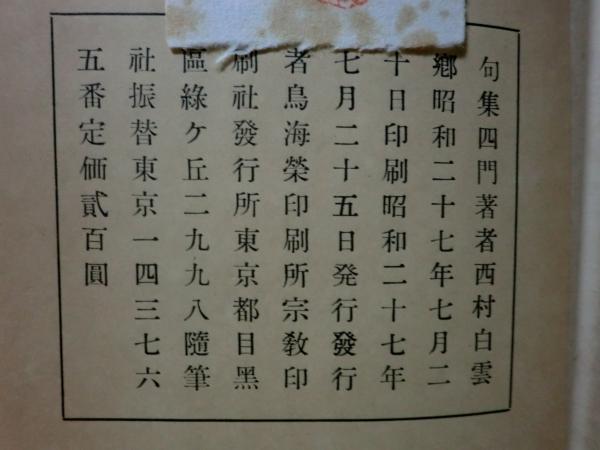 句集四門著者西村白雲
鄕昭和二十七年七月二
十日印刷昭和二十七年
七月二十五日発行發行
者鳥海榮印刷所宗敎印
刷社發行所東京都目黑
區綠ケ丘二九九八隨筆
社振替東京一四三七六
五番定価貳百圓